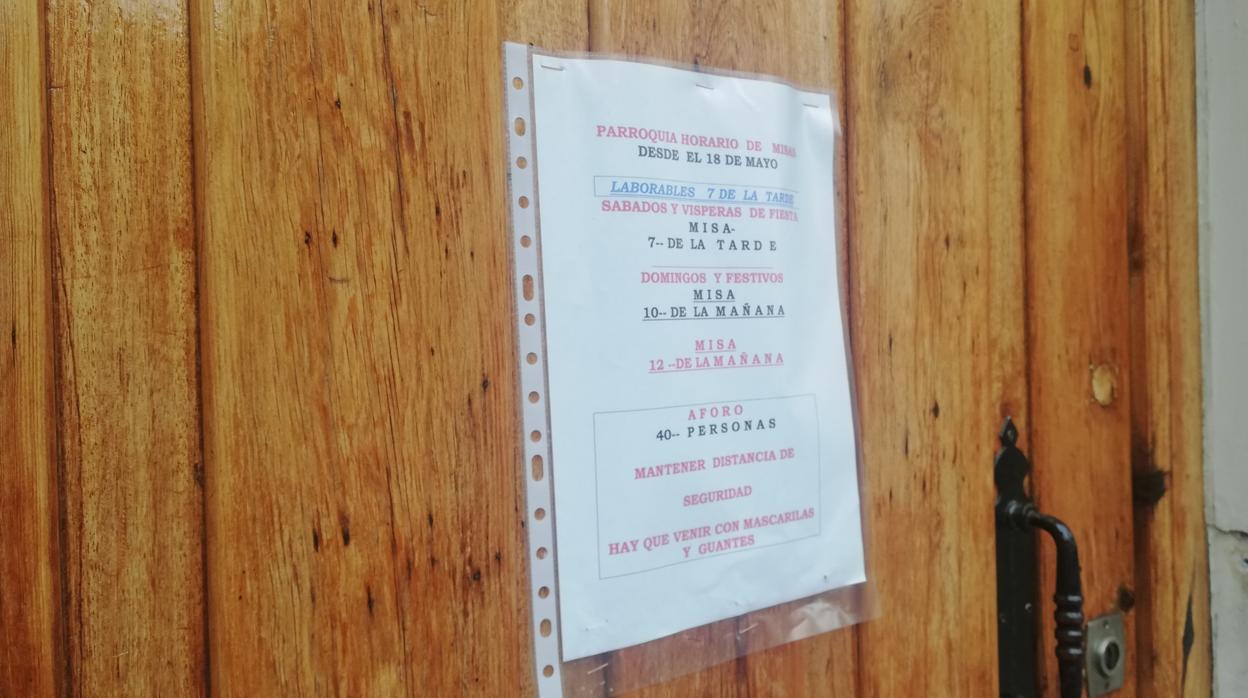 PARROQUIA HORARIO DE MISAS
DESDE EL 18 DE MAYO
LABORABLES 7 DE LA TARDE
SABADOS Y VISPERAS DE FIESTA
MISA-
7-- DE LA TARDE
DOMINGOS Y FESTIVOS
MISA
10-- DE LA MAÑANA
MISA
12 --DE LA MAÑANA
AFORO
40-- PERSONAS
MANTENER DISTANCIA DE
SEGURIDAD
HAY QUE VENIR CON MASCARILAS
Y GUANTES